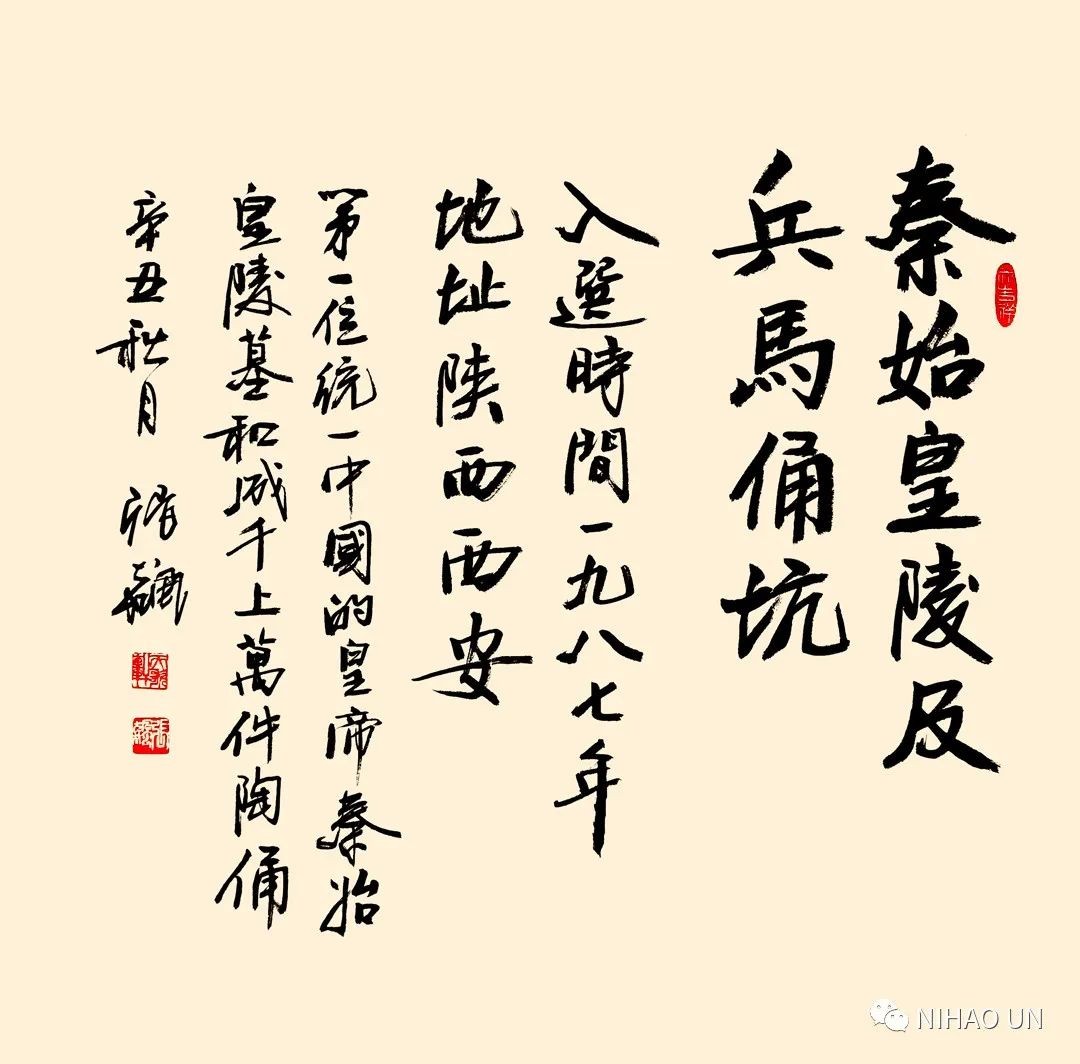 秦始皇陵及
兵馬俑坑
入選時間一九八七年
地址陕西西安
第一位統一中國的皇帝秦始
皇陵墓和成千上萬件陶俑
辛丑秋月
NIHAO UN